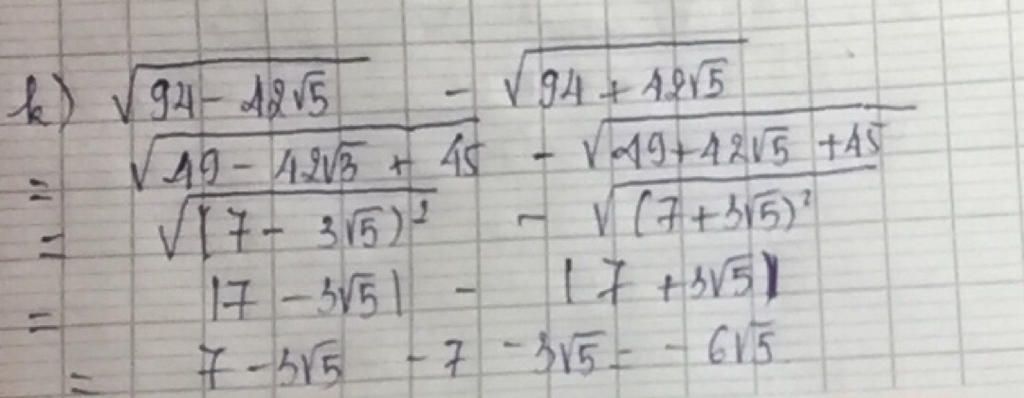 k) √(94 - 42√5) - √(94 + 42√5)
= √(49 - 42√5 + 45) - √(49 + 42√5 + 45)
= √((7 - 3√5)²) - √((7 + 3√5)²)
= |7 - 3√5| - |7 + 3√5|
= 7 - 3√5 - 7 - 3√5 = - 6√5